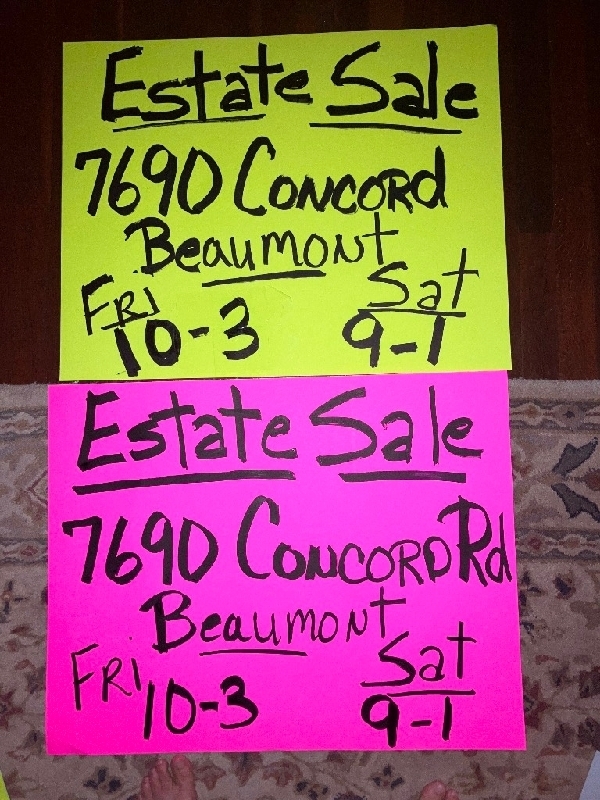 Estate Sale
7690 Concord
Beaumont
Fri Sat
10-3 9-1
Estate Sale
7690 Concord Rd
Beaumont
Fri Sat
10-3 9-1